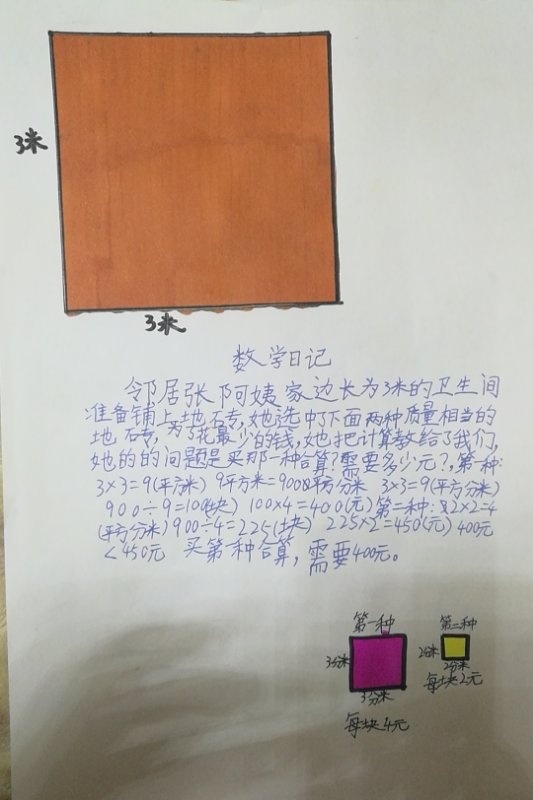 3米
3米
数学日记
邻居张阿姨家边长为3米的卫生间
准备铺上地石专,她选中了下面两种质量相当的
地石专,为了花最少的钱,她把计算教给了我们,
她的的问题是买那一种合算?需要多少元?,第一种:
3×3=9(平方米) 9平方米=900平方分米 3×3=9(平方分米)
900÷9=100(块) 100×4=400(元)第二种:2×2=4
(平方分米)900÷4=225(块) 225×2=450(元) 400元
<450元 买第一种合算,需要400元。
第一种 第二种
3分米 2分米
3分米 2分米
每块4元 每块2元